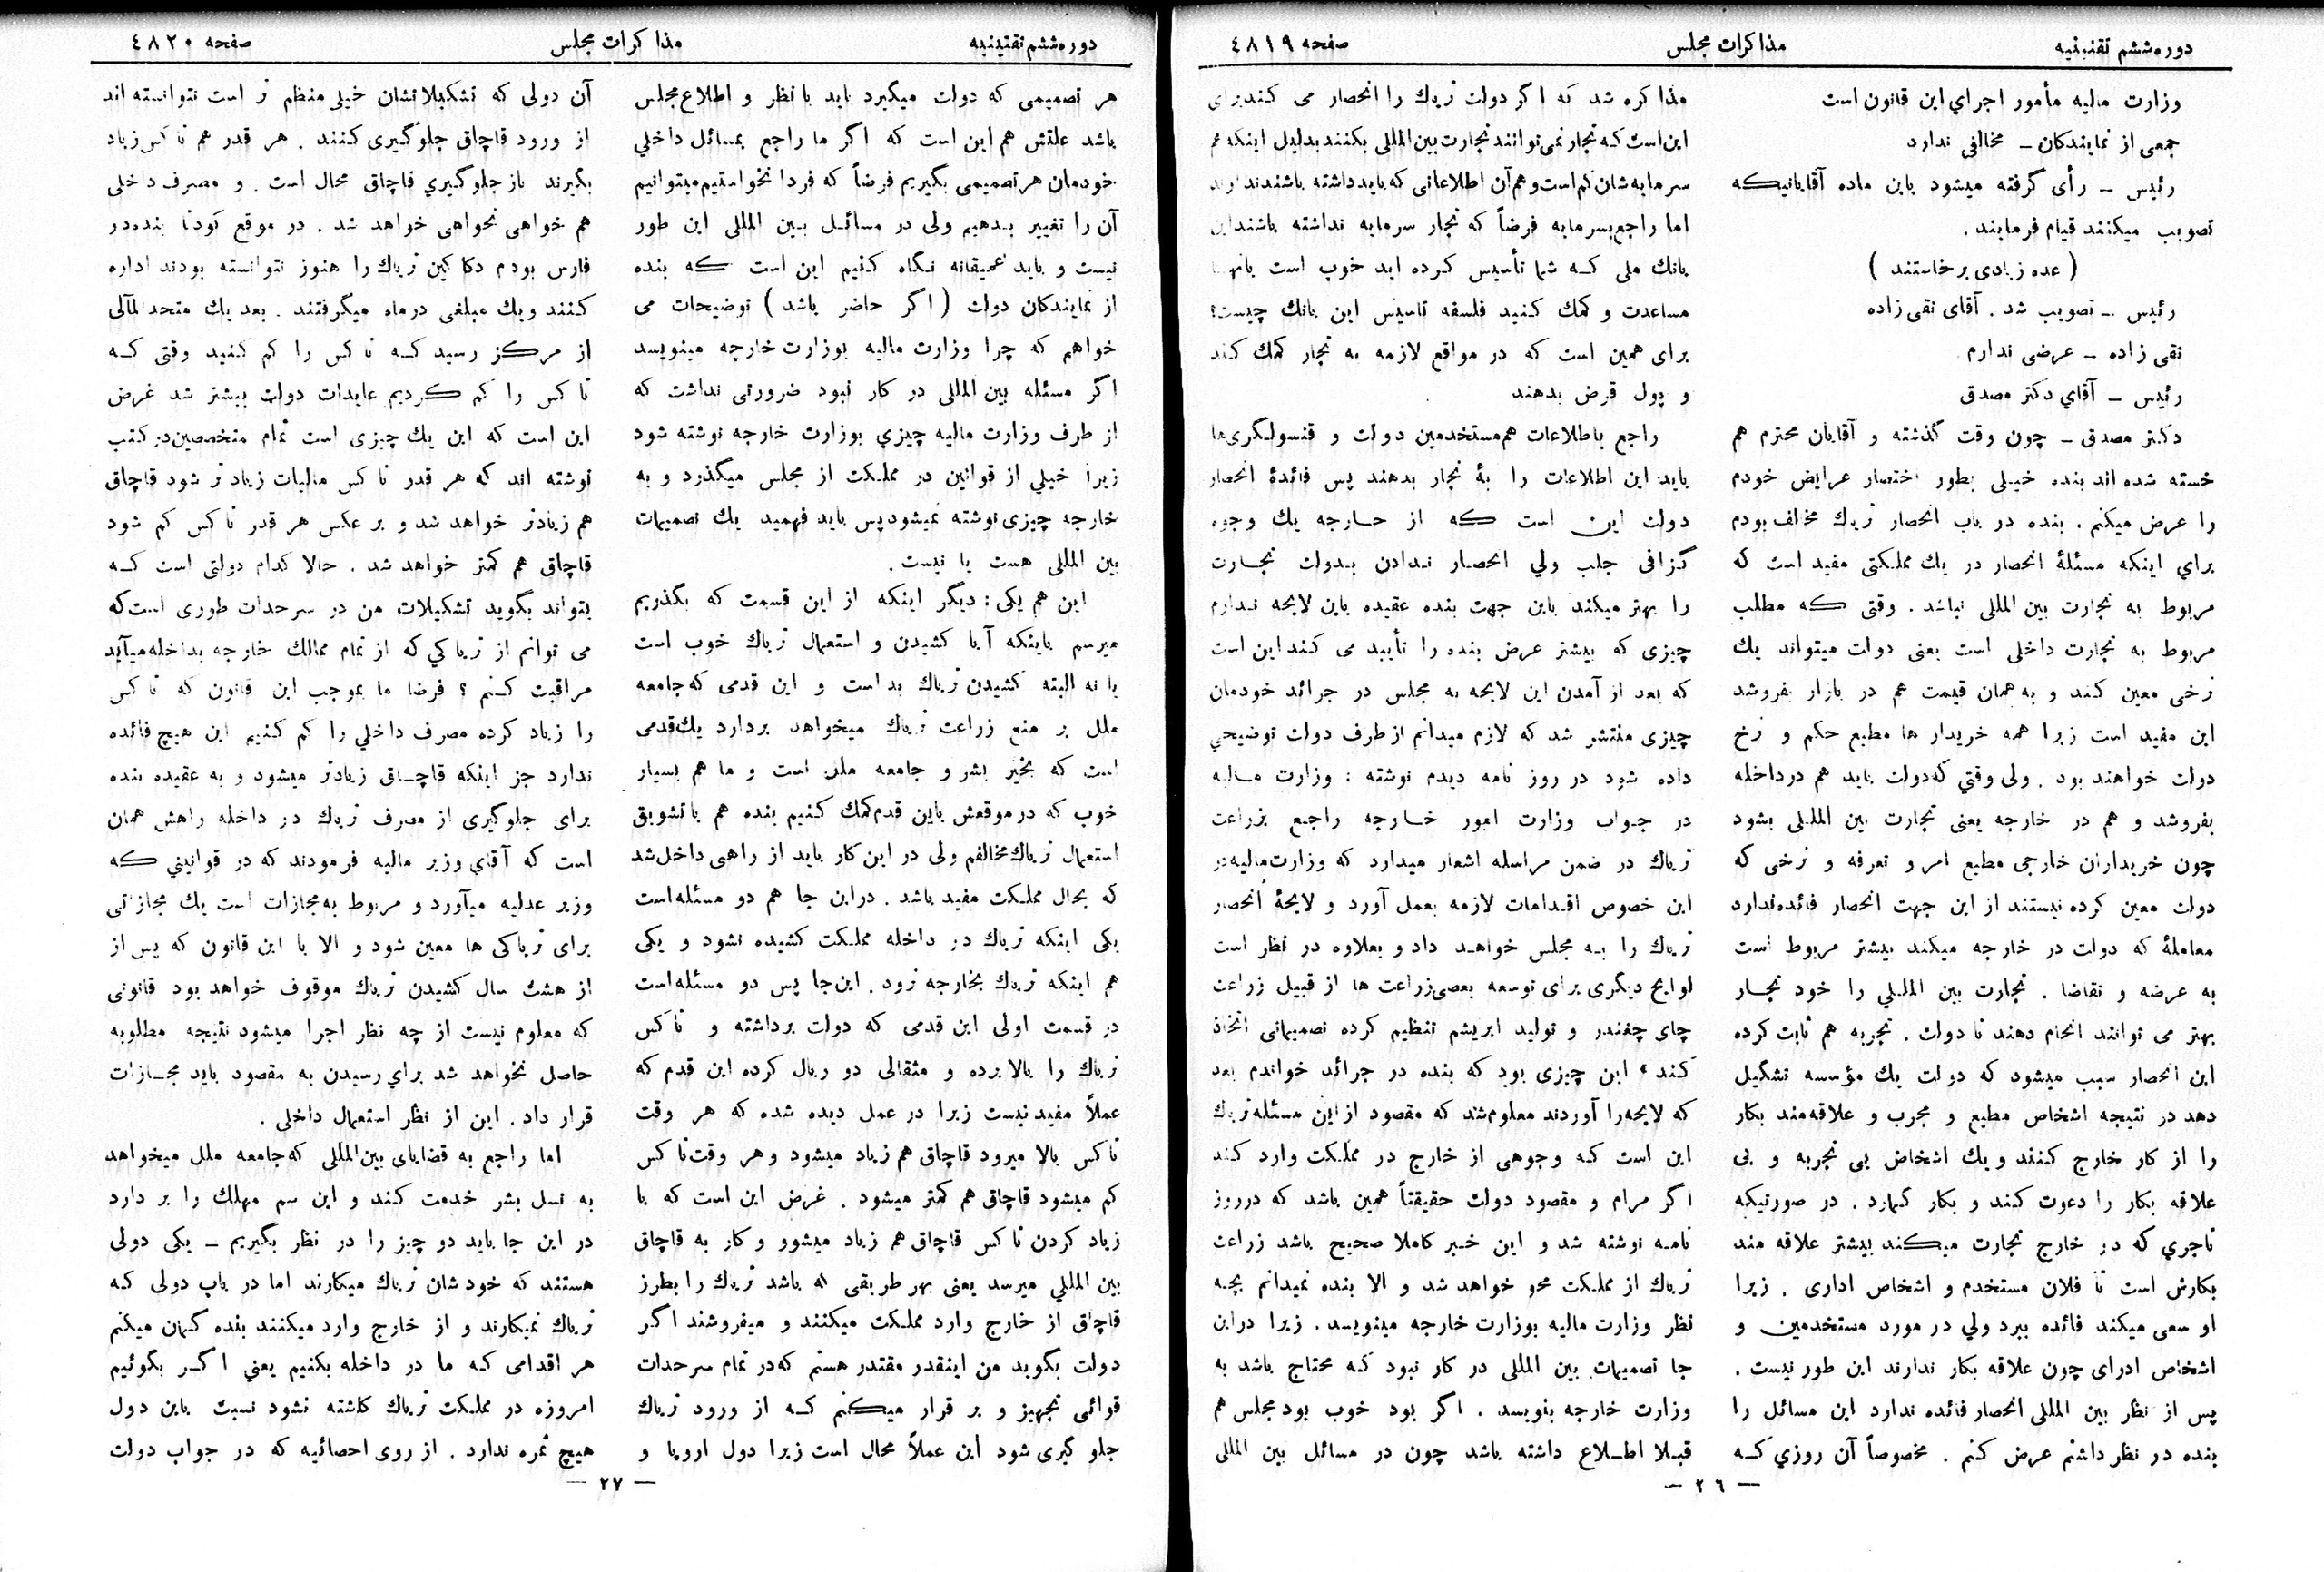 دوره ششم تقنینیه
مذاکرات مجلس
صفحه ٤٨١٩
وزارت مالیه مأمور اجراي این قانون است
جمعی از نمایندکان ــ مخالفی ندارد
رئیس ــ رأی گرفته میشود باین ماده آقایانیکه
تصویب میکنند قیام فرمایند .
( عده زیادی برخاستند )
رئیس ــ تصویب شد . آقای تقی زاده
تقی زاده ــ عرضی ندارم
رئیس ــ آقاي دکتر مصدق
دکتر مصدق ــ چون وقت گذشته و آقایان محترم هم
خسته شده اند بنده خیلی بطور اختصار عرایض خودم
را عرض میکنم . بنده در باب انحصار تریاك مخالف بودم
براي اینکه مسئلۀ انحصار در یك مملکتی مفید است که
مربوط به تجارت بین المللی نباشد . وقتی که مطلب
مربوط به تجارت داخلی است یعنی دولت میتواند یك
نرخی معین کند و به همان قیمت هم در بازار بفروشد
این مفید است زیرا همه خریدار ها مطیع حکم و نرخ
دولت خواهند بود . ولی وقتي که دولت باید هم در داخله
بفروشد و هم در خارجه یعنی تجارت بین المللی بشود
چون خریداران خارجی مطیع امر و تعرفه و نرخی که
دولت معین کرده نیستند از این جهت انحصار فائده ندارد
معاملۀ که دولت در خارجه میکند بیشتر مربوط است
به عرضه و تقاضا . تجارت بین المللي را خود تجار
بهتر می توانند انجام دهند تا دولت . تجربه هم ثابت کرده
این انحصار سبب میشود که دولت یك مؤسسه تشکیل
دهد در نتیجه اشخاص مطیع و مجرب و علاقه مند بکار
را از کار خارج کنند و یك اشخاص بی تجربه و بی
علاقه بکار را دعوت کند و بکار گمارد . در صورتیکه
تاجري که در خارج تجارت میکند بیشتر علاقه مند
بکارش است تا فلان مستخدم و اشخاص اداری . زیرا
او سعی میکند فائده ببرد ولي در مورد مستخدمین و
اشخاص ادرای چون علاقه بکار ندارند این طور نیست .
پس از نظر بین المللی انحصار فائده ندارد این مسائل را
بنده در نظر داشتم عرض کنم . مخصوصاً آن روزي که
مذاکره شد که اگر دولت تریاك را انحصار می کند برای
این است که تجار نمی توانند تجارت بین المللی بکنند بدلیل اینکه هم
سرمایه شان کم است و هم آن اطلاعاتی که باید داشته باشند ندارند
اما راجع بسرمایه فرضاً که تجار سرمایه نداشته باشند این
بانك ملی که شما تأسیس کرده اید خوب است بآنها
مساعدت و کمك کنید فلسفه تاسیس این بانك چیست؟
برای همین است که در مواقع لازمه به تجار کمك کند
و پول قرض بدهند
راجع باطلاعات هم مستخدمین دولت و قنسولگری ها
باید این اطلاعات را به تجار بدهند پس فائدۀ انحصار
دولت این است که از خارجه یك وجوه
گزافی جلب ولي انحصار ندادن بدولت تجارت
را بهتر میکند باین جهت بنده عقیده باین لایحه ندارم
چیزی که بیشتر عرض بنده را تأیید می کند این است
که بعد از آمدن این لایحه به مجلس در جرائد خودمان
چیزی منتشر شد که لازم میدانم از طرف دولت توضیحي
داده شود در روز نامه دیدم نوشته : وزارت مالیه
در جواب وزارت امور خارجه راجع بزراعت
تریاك در ضمن مراسله اشعار میدارد که وزارت مالیه در
این خصوص اقدامات لازمه بعمل آورد و لایحۀ انحصار
تریاك را به مجلس خواهد داد و بعلاوه در نظر است
لوایح دیگری برای توسعه بعضی زراعت ها از قبیل زراعت
چای چغندر و تولید ابریشم تنظیم کرده تصمیماتی اتخاذ
کند ، این چیزی بود که بنده در جرائد خواندم بعد
که لایحه را آوردند معلوم شد که مقصود از این مسئله تریاك
این است که وجوهی از خارج در مملکت وارد کند
اگر مرام و مقصود دولت حقیقتاً همین باشد که در روز
نامه نوشته شد و این خبر کاملا صحیح باشد زراعت
تریاك از مملکت محو خواهد شد و الا بنده نمیدانم بچه
نظر وزارت مالیه بوزارت خارجه مینویسد . زیرا در این
جا تصمیمات بین المللی در کار نبود که محتاج باشد به
وزارت خارجه بنویسد . اگر بود خوب بود مجلس هم
قبلا اطلاع داشته باشد چون در مسائل بین المللی
— ٢٦ —
دوره ششم تقنینیه
مذاکرات مجلس
صفحه ٤٨٢٠
هر تصمیمی که دولت میگیرد باید با نظر و اطلاع مجلس
باشد علتش هم این است که اگر ما راجع بمسائل داخلي
خودمان هر تصمیمی بگیریم فرضاً که فردا نخواستیم میتوانیم
آن را تغییر بدهیم ولی در مسائل بین المللی این طور
نیست و باید عمیقانه نگاه کنیم این است که بنده
از نمایندکان دولت ( اگر حاضر باشد ) توضیحات می
خواهم که چرا وزارت مالیه بوزارت خارجه مینویسد
اگر مسئله بین المللی در کار نبود ضرورتی نداشت که
از طرف وزارت مالیه چیزي بوزارت خارجه نوشته شود
زیرا خیلي از قوانین در مملکت از مجلس میگذرد و به
خارجه چیزی نوشته نمیشود پس باید فهمید یك تصمیمات
بین المللی هست یا نیست .
این هم یکی : دیگر اینکه از این قسمت که بگذریم
میرسم باینکه آیا کشیدن و استعمال تریاك خوب است
یا نه البته کشیدن تریاك بد است و این قدمی که جامعه
ملل بر منع زراعت تریاك میخواهد بردارد یك قدمی
است که بخیر بشر و جامعه ملل است و ما هم بسیار
خوب که در موقعش باین قدم کمك کنیم بنده هم با تشویق
استعمال تریاك مخالفم ولی در این کار باید از راهی داخل شد
که بحال مملکت مفید باشد . در این جا هم دو مسئله است
یکی اینکه تریاك در داخله مملکت کشیده نشود و یکی
هم اینکه تریاك بخارجه نرود . این جا پس دو مسئله است
در قسمت اولی این قدمی که دولت برداشته و تاکس
تریاك را بالا برده و مثقالی دو ریال کرده این قدم که
عملاً مفید نیست زیرا در عمل دیده شده که هر وقت
تاکس بالا میرود قاچاق هم زیاد میشود و هر وقت تاکس
کم میشود قاچاق هم کمتر میشود . غرض این است که با
زیاد کردن تاکس قاچاق هم زیاد میشوو و کار به قاچاق
بین المللي میرسد یعنی بهر طریقی که باشد تریاك را بطرز
قاچاق از خارج وارد مملکت میکنند و میفروشند اگر
دولت بگوید من اینقدر مقتدر هستم که در تمام سرحدات
قوائی تجهیز و بر قرار میکنم که از ورود تریاك
جلو گیری شود این عملاً محال است زیرا دول اروپا و
آن دولی که تشکیلاتشان خیلی منظم تر است نتوانسته اند
از ورود قاچاق جلوگیری کنند . هر قدر هم تاکس زیاد
بگیرند باز جلوگیري قاچاق محال است . و مصرف داخلی
هم خواهی نخواهی خواهد شد . در موقع کودتا بنده در
فارس بودم دکاکین تریاك را هنوز نتوانسته بودند اداره
کنند و یك مبلغی در ماه میگرفتند . بعد یك متحد المآلی
از مرکز رسید که تاکس را کم کنید وقتی که
تاکس را کم کردیم عایدات دولت بیشتر شد غرض
این است که این یك چیزی است تمام متخصصین در کتب
نوشته اند که هر قدر تاکس مالیات زیاد تر شود قاچاق
هم زیادتر خواهد شد و بر عکس هر قدر تاکس کم شود
قاچاق هم کمتر خواهد شد . حالا کدام دولتی است که
بتواند بگوید تشکیلات من در سرحدات طوری است که
می توانم از تریاکي که از تمام ممالك خارجه بداخله میآید
مراقبت کنم ؟ فرضا ما بموجب این قانون که تاکس
را زیاد کرده مصرف داخلي را کم کنیم این هیچ فائده
ندارد جز اینکه قاچاق زیادتر میشود و به عقیده بنده
برای جلوگیری از مصرف تریاك در داخله راهش همان
است که آقاي وزیر مالیه فرمودند که در قوانیني که
وزیر عدلیه میآورد و مربوط به مجازات است یك مجازاتی
برای تریاکی ها معین شود و الا با این قانون که پس از
از هشت سال کشیدن تریاك موقوف خواهد بود قانونی
که معلوم نیست از چه نظر اجرا میشود نتیجه مطلوبه
حاصل نخواهد شد براي رسیدن به مقصود باید مجازات
قرار داد . این از نظر استعمال داخلی .
اما راجع به قضایای بین المللی که جامعه ملل میخواهد
به نسل بشر خدمت کند و این سم مهلك را بر دارد
در این جا باید دو چیز را در نظر بگیریم ــ یکی دولی
هستند که خودشان تریاك میکارند اما در باب دولی که
تریاك نمیکارند و از خارج وارد میکنند بنده گمان میکنم
هر اقدامی که ما در داخله بکنیم یعني اگر بگوئیم
امروزه در مملکت تریاك کاشته نشود نسبت باین دول
هیچ ثمره ندارد . از روی احصائیه که در جواب دولت
— ٢٧ —